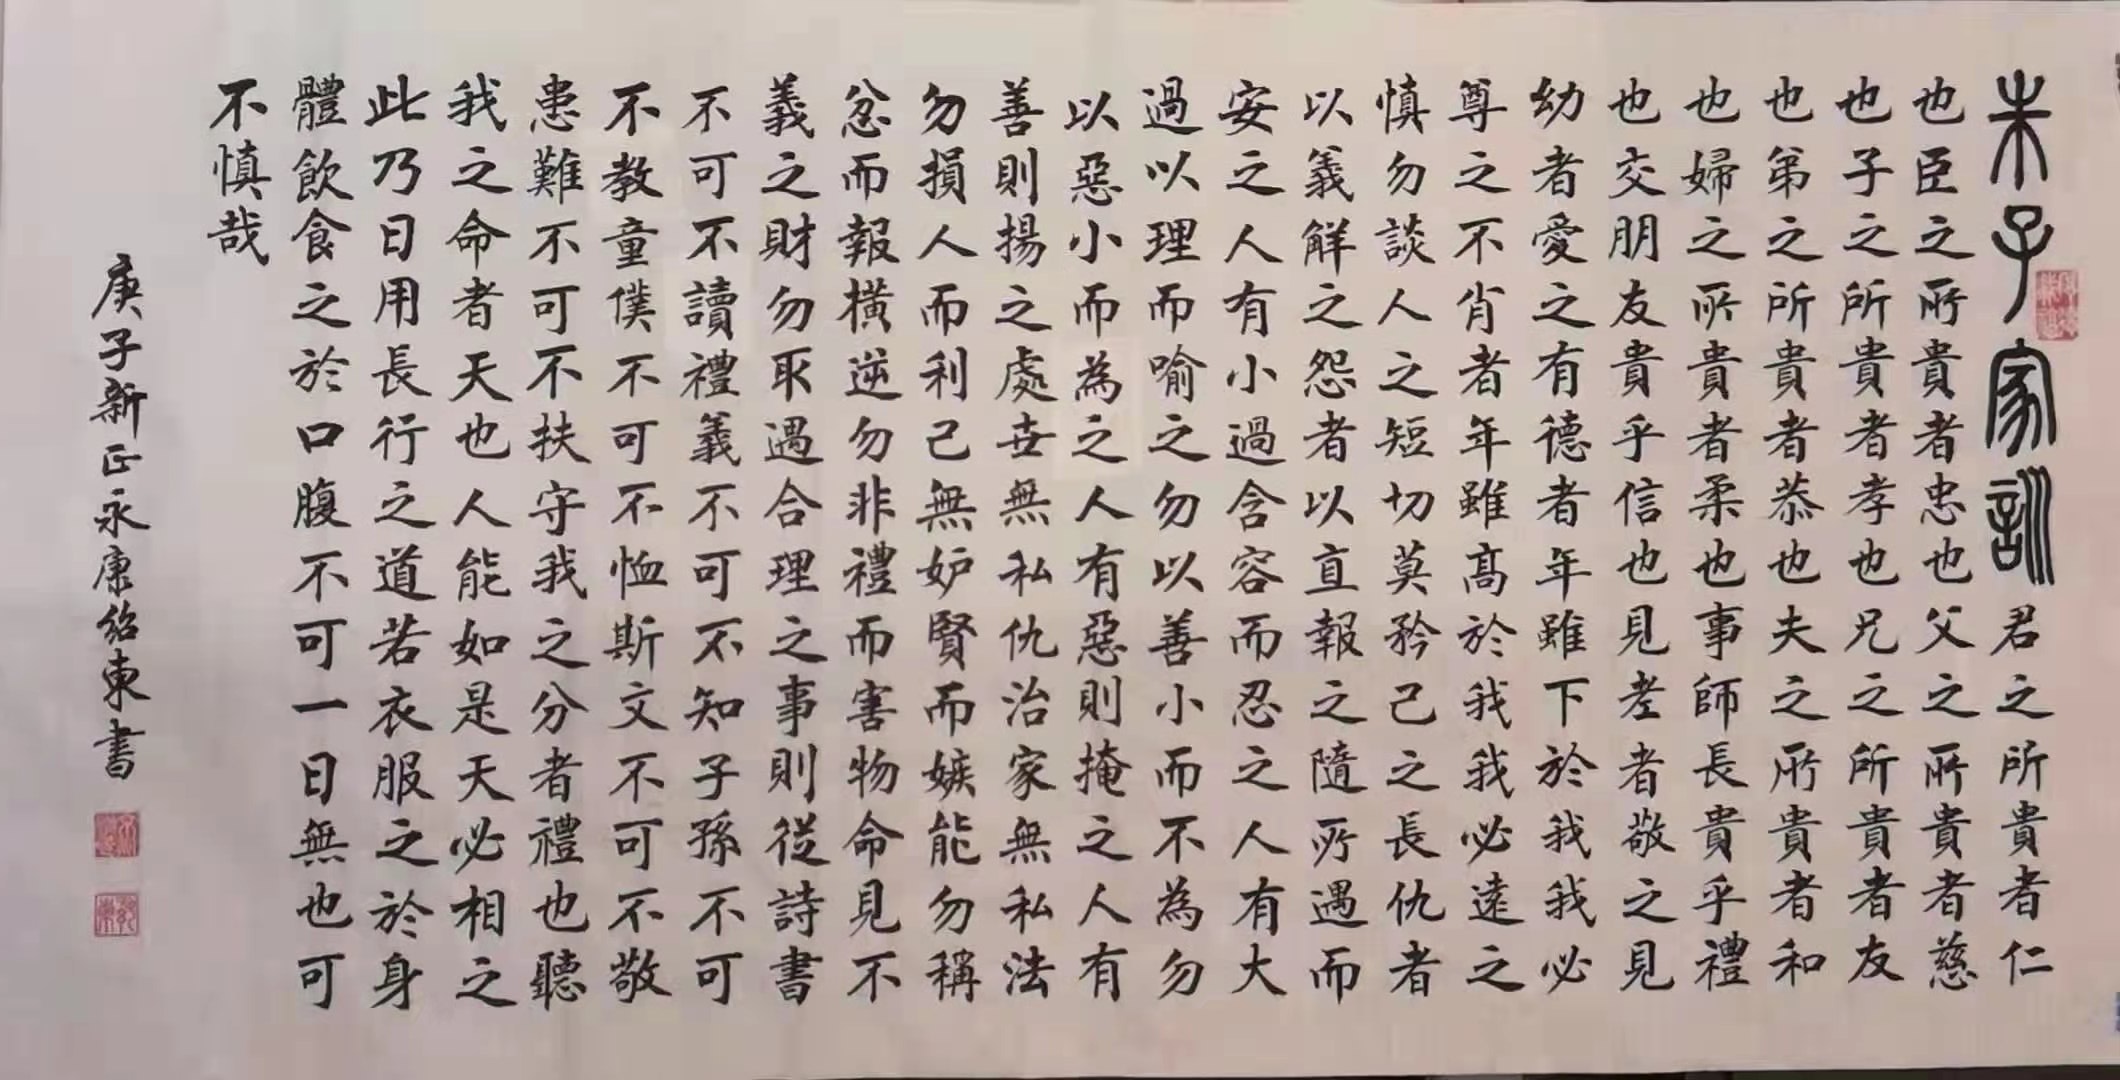 朱子家訓君之所貴者仁
也臣之所貴者忠也父之所貴者慈
也子之所貴者孝也兄之所貴者友
也弟之所貴者恭也夫之所貴者和
也婦之所貴者柔也事師長貴乎禮
也交朋友貴乎信也見老者敬之見
幼者愛之有德者年雖下於我我必
尊之不肖者年雖高於我我必遠之
慎勿談人之短切莫矜己之長仇者
以義解之怨者以直報之隨所遇而
安之人有小過含容而忍之人有大
過以理而喻之勿以善小而不為勿
以惡小而為之人有惡則掩之人有
善則揚之處世無私仇治家無私法
勿損人而利己無妒賢而嫉能勿稱
忿而報橫逆勿非禮而害物命見不
義之財勿取遇合理之事則從詩書
不可不讀禮義不可不知子孫不可
不教童僕不可不恤斯文不可不敬
患難不可不扶守我之分者禮也聽
我之命者天也人能如是天必相之
此乃日用長行之道若衣服之於身
體飲食之於口腹不可一日無也可
不慎哉
庚子新正永康紹東書